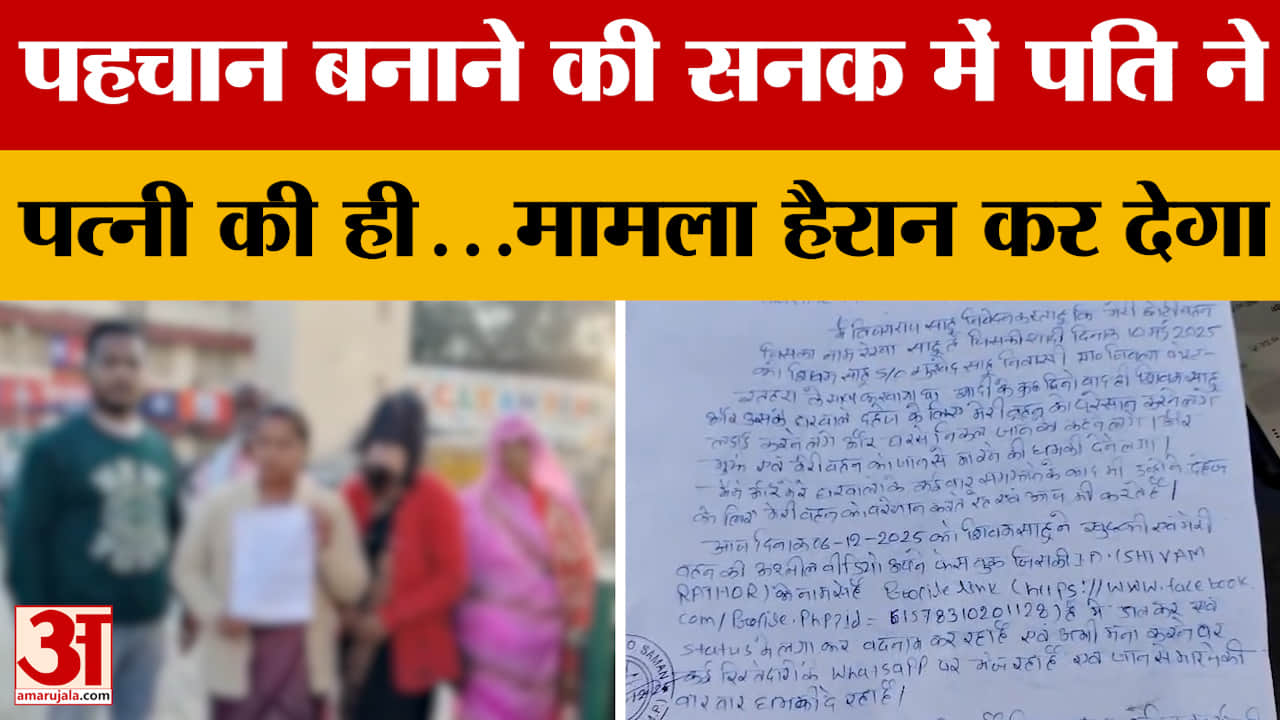 पहचान बनाने की सनक में पति ने
पत्नी की ही...मामला हैरान कर देगा
साहू निवेदन करता हूं कि मेरी छोटी बहन
जिसका नाम रेखा साहू है जिसकी शादी दिनांक 10 मई 2025
साहू S/O साहू निवासी
शादी के कुछ दिनों बाद ही शिवम साहू
और उसके घरवाले दहेज के लिए मेरी बहन को परेशान करने लगे
लड़ाई करने लगे और घर से निकल जाने को कहने लगे।
मुझे एवं मेरी बहन को जान से मारने की धमकी देने लगा।
मैंने और मेरे घरवालों के कई बार समझाने के बाद भी उन्होंने दहेज
के लिए मेरी बहन को परेशान करते रहे एवं आज भी करते हैं।
आज दिनांक 06-12-2025 को शिवम साहू ने खुद की एवं मेरी
बहन की अश्लील वीडियो अपने फेसबुक जिसकी I.D. (SHIVAM
RATHOR) के नाम से है link (https://www.facebook.
com/ Php?id = 61578310201128) है में डालकर एवं
status में लगा कर बदनाम कर रहा है एवं अभी मना करने पर
कई रिश्तेदारों के Whatsapp पर भेज रहा है एवं जान से मारने की
बार बार धमकी दे रहा है।
SAMAN
अ
amarujala.com